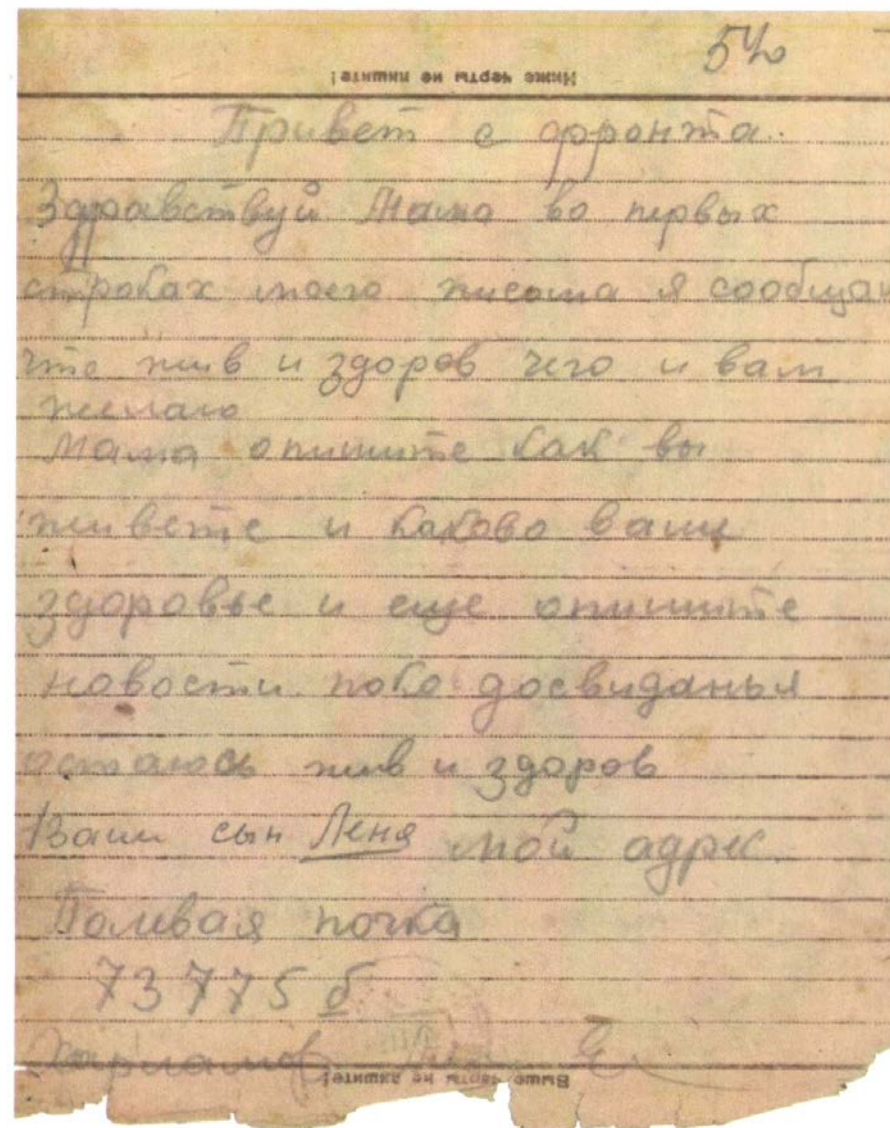 54
Ниже черты не пишите!
Привет с фронта.
Здравствуй Мама во первых
строках моего писома я сообщаю
что жив и здоров чего и вам
желаю
Мама опишите как вы
живете и каково ваше
здоровье и еще опишите
новости. пока досвиданья
остаюсь жив и здоров
Ваш сын Леня мой адрес
Полевая почка
73775 б
Харламов
Выше черты не пишите!